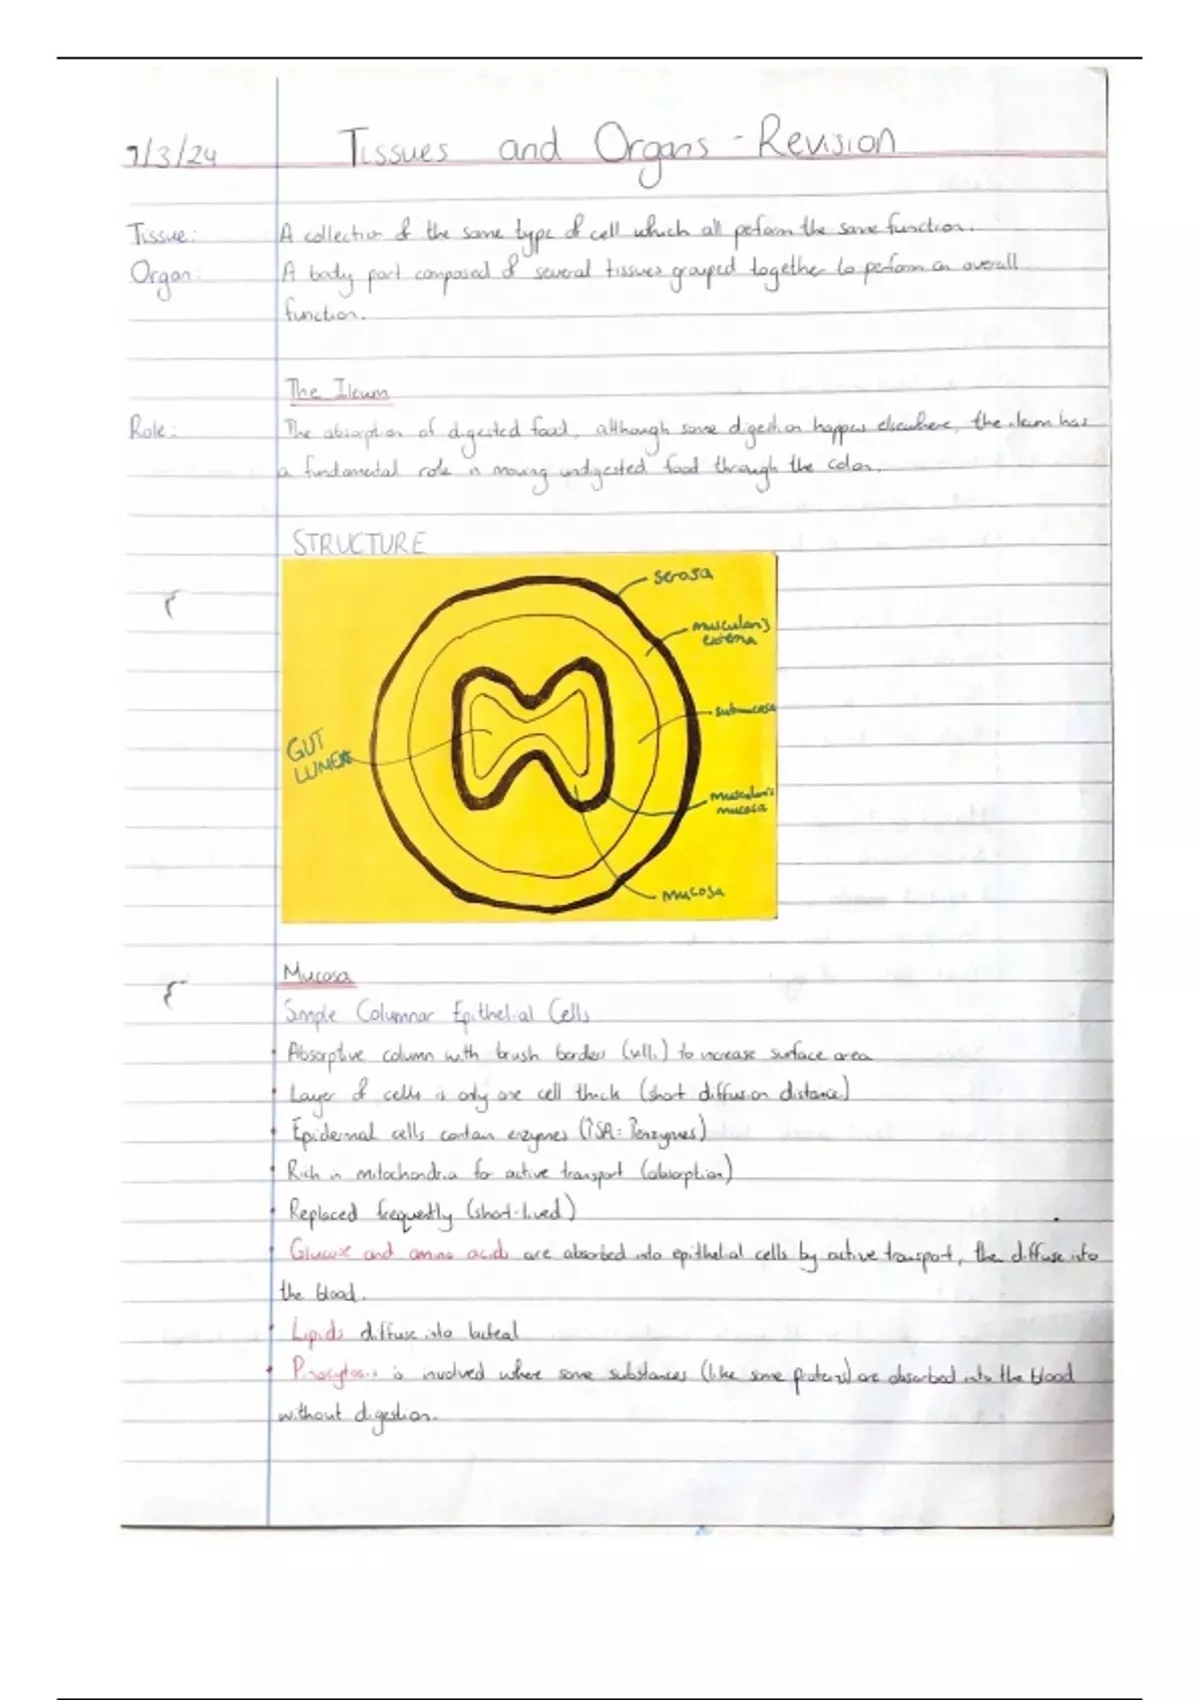 7/3/24 Tissues and Organs - Revision
Tissue: A collection of the same type of cell which all peform the same function.
Organ: A body part composed of several tissues grouped together to perform an overall
function.
The Ileum
Role: The absorption of digested food, although some digestion happens elsewhere, the ileum has
a fundamental role in moving undigested food through the colon.
STRUCTURE
serosa
muscularis
externa
submucosa
GUT
LUMEN
muscularis
mucosa
mucosa
Mucosa
Simple Columnar Epithelial Cells
• Absorptive column with brush borders (villi) to increase surface area
• Layer of cells is only one cell thick (short diffusion distance)
• Epidermal cells contain enzymes (↑SA = ↑enzymes)
• Rich in mitochondria for active transport (absorption)
• Replaced frequently (short-lived)
• Glucose and amino acids are absorbed into epithelial cells by active transport, then diffuse into
the blood.
• Lipids diffuse into lacteal
• Pinocytosis is involved where some substances (like some proteins) are absorbed into the blood
without digestion.